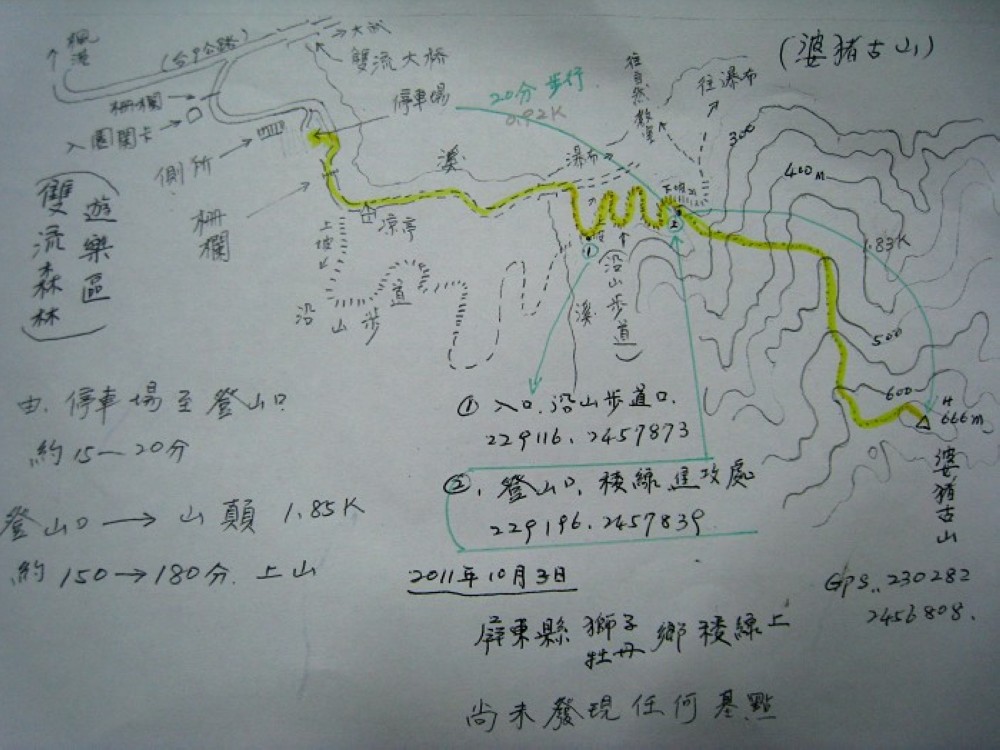 (婆豬古山)
楓港
(台9公路)
大武
雙流大橋
停車場
20分 步行
0.92K
往自然教室
往瀑布
柵欄
入園關卡
側所
溪
瀑布
300
400M
1.83K
雙流森林
遊樂區
柵欄
上坡
涼亭
沿山步道
①
②
(沿山步道)
溪
500
600
H
666M
婆豬古山
由.停車場至登山口
約15—20分
① 入口.沿山步道口.
229116. 2457873
②. 登山口. 稜線進攻處
229196. 2457839
登山口 → 山顛 1.85K
約 150→180分. 上山
2011年10月3日
GPS.. 230282
2456808.
屏東縣 獅子
牡丹 鄉稜線上
尚未發現任何基點